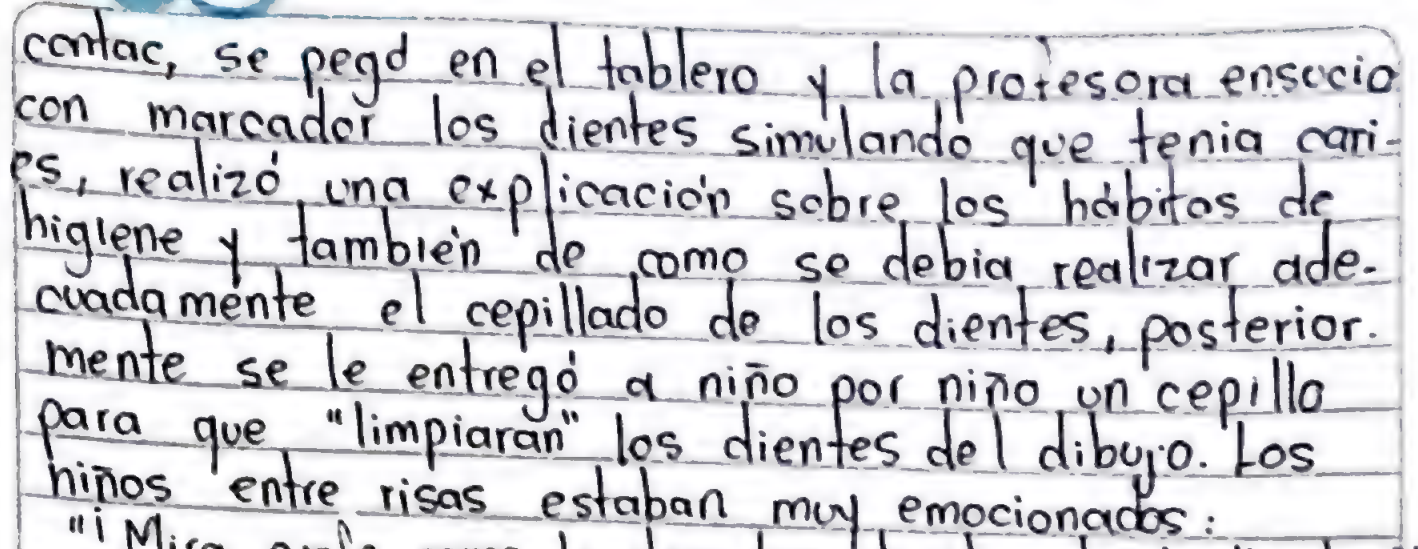 contac, se pegó en el tablero y la profesora ensucio
con marcador los dientes simulando que tenia cari-
es, realizó una explicación sobre los hábitos de
higiene y también de como se debia realizar ade-
cuadamente el cepillado de los dientes, posterior-
mente se le entregó a niño por niño un cepillo
para que "limpiaran" los dientes del dibujo. Los
niños entre risas estaban muy emocionados:
"¡Mira